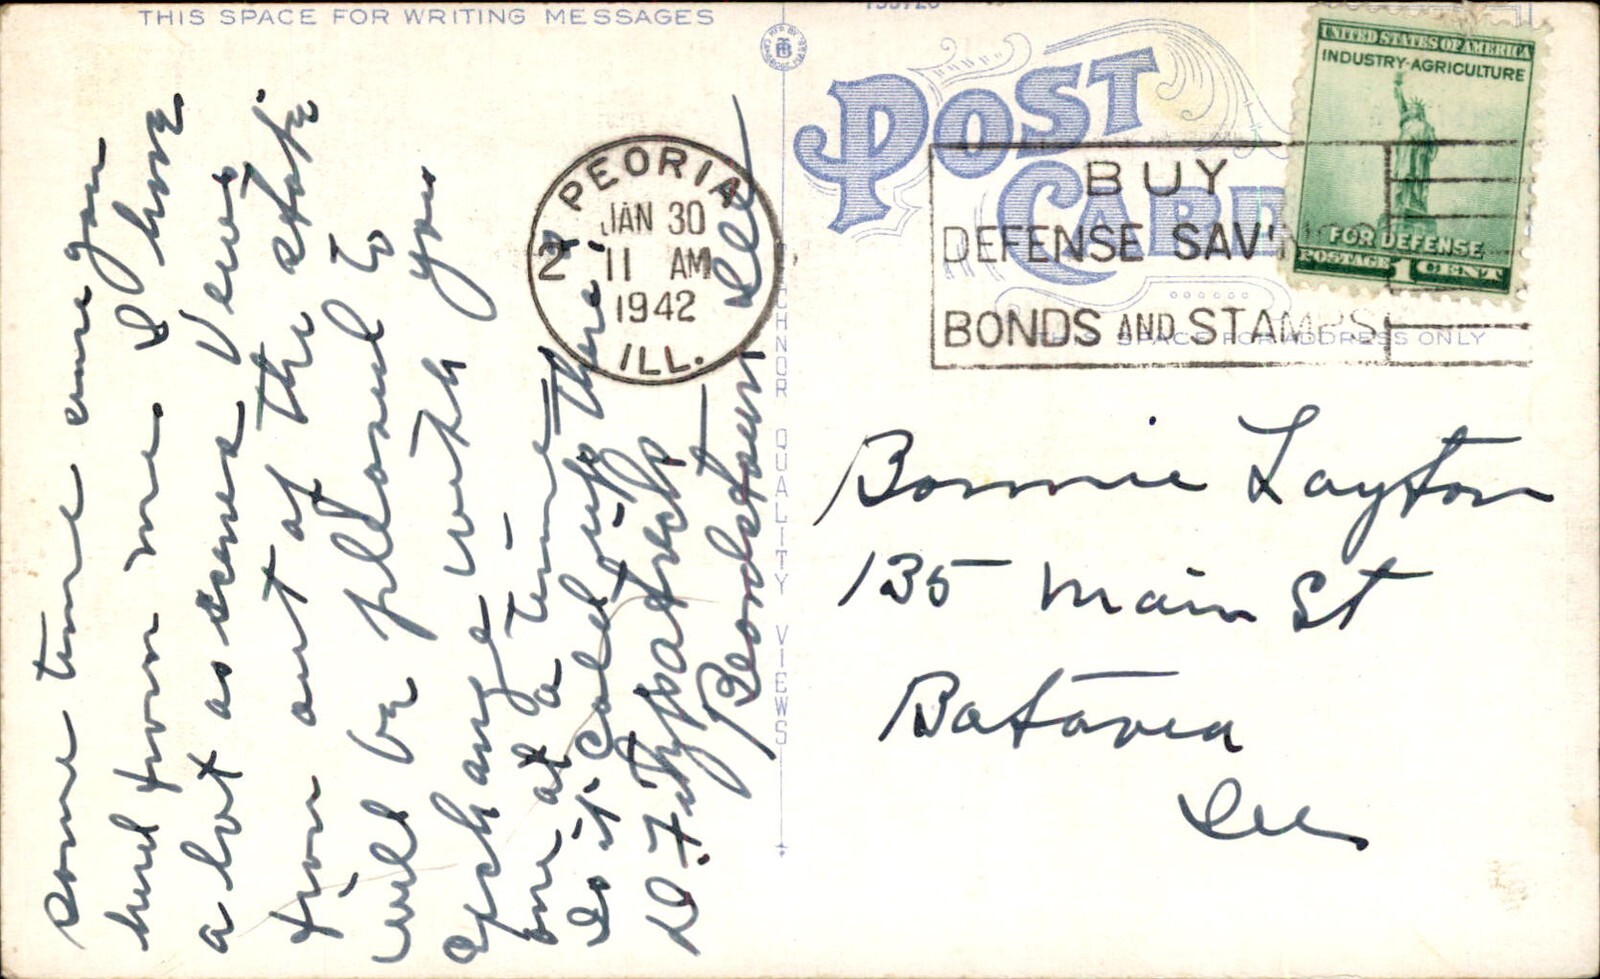 THIS SPACE FOR WRITING MESSAGES
some time you
herd from me. I have
a lot as scenes Views
from out of the state
will be pleased to
exchange with you
one at a time
Is it cold up there.
D. Fitzpatrick
Beardstown Ill
PEORIA
JAN 30
2 11 AM
1942
ILL.
CHNOR QUALITY VIEWS
POST
CARD
BUY
DEFENSE SAV
BONDS AND STAMPS
UNITED STATES OF AMERICA
INDUSTRY-AGRICULTURE
FOR DEFENSE
POSTAGE 1 CENT
SPACE FOR ADDRESS ONLY
Bonnie Layton
135 Main St
Batavia
Ill